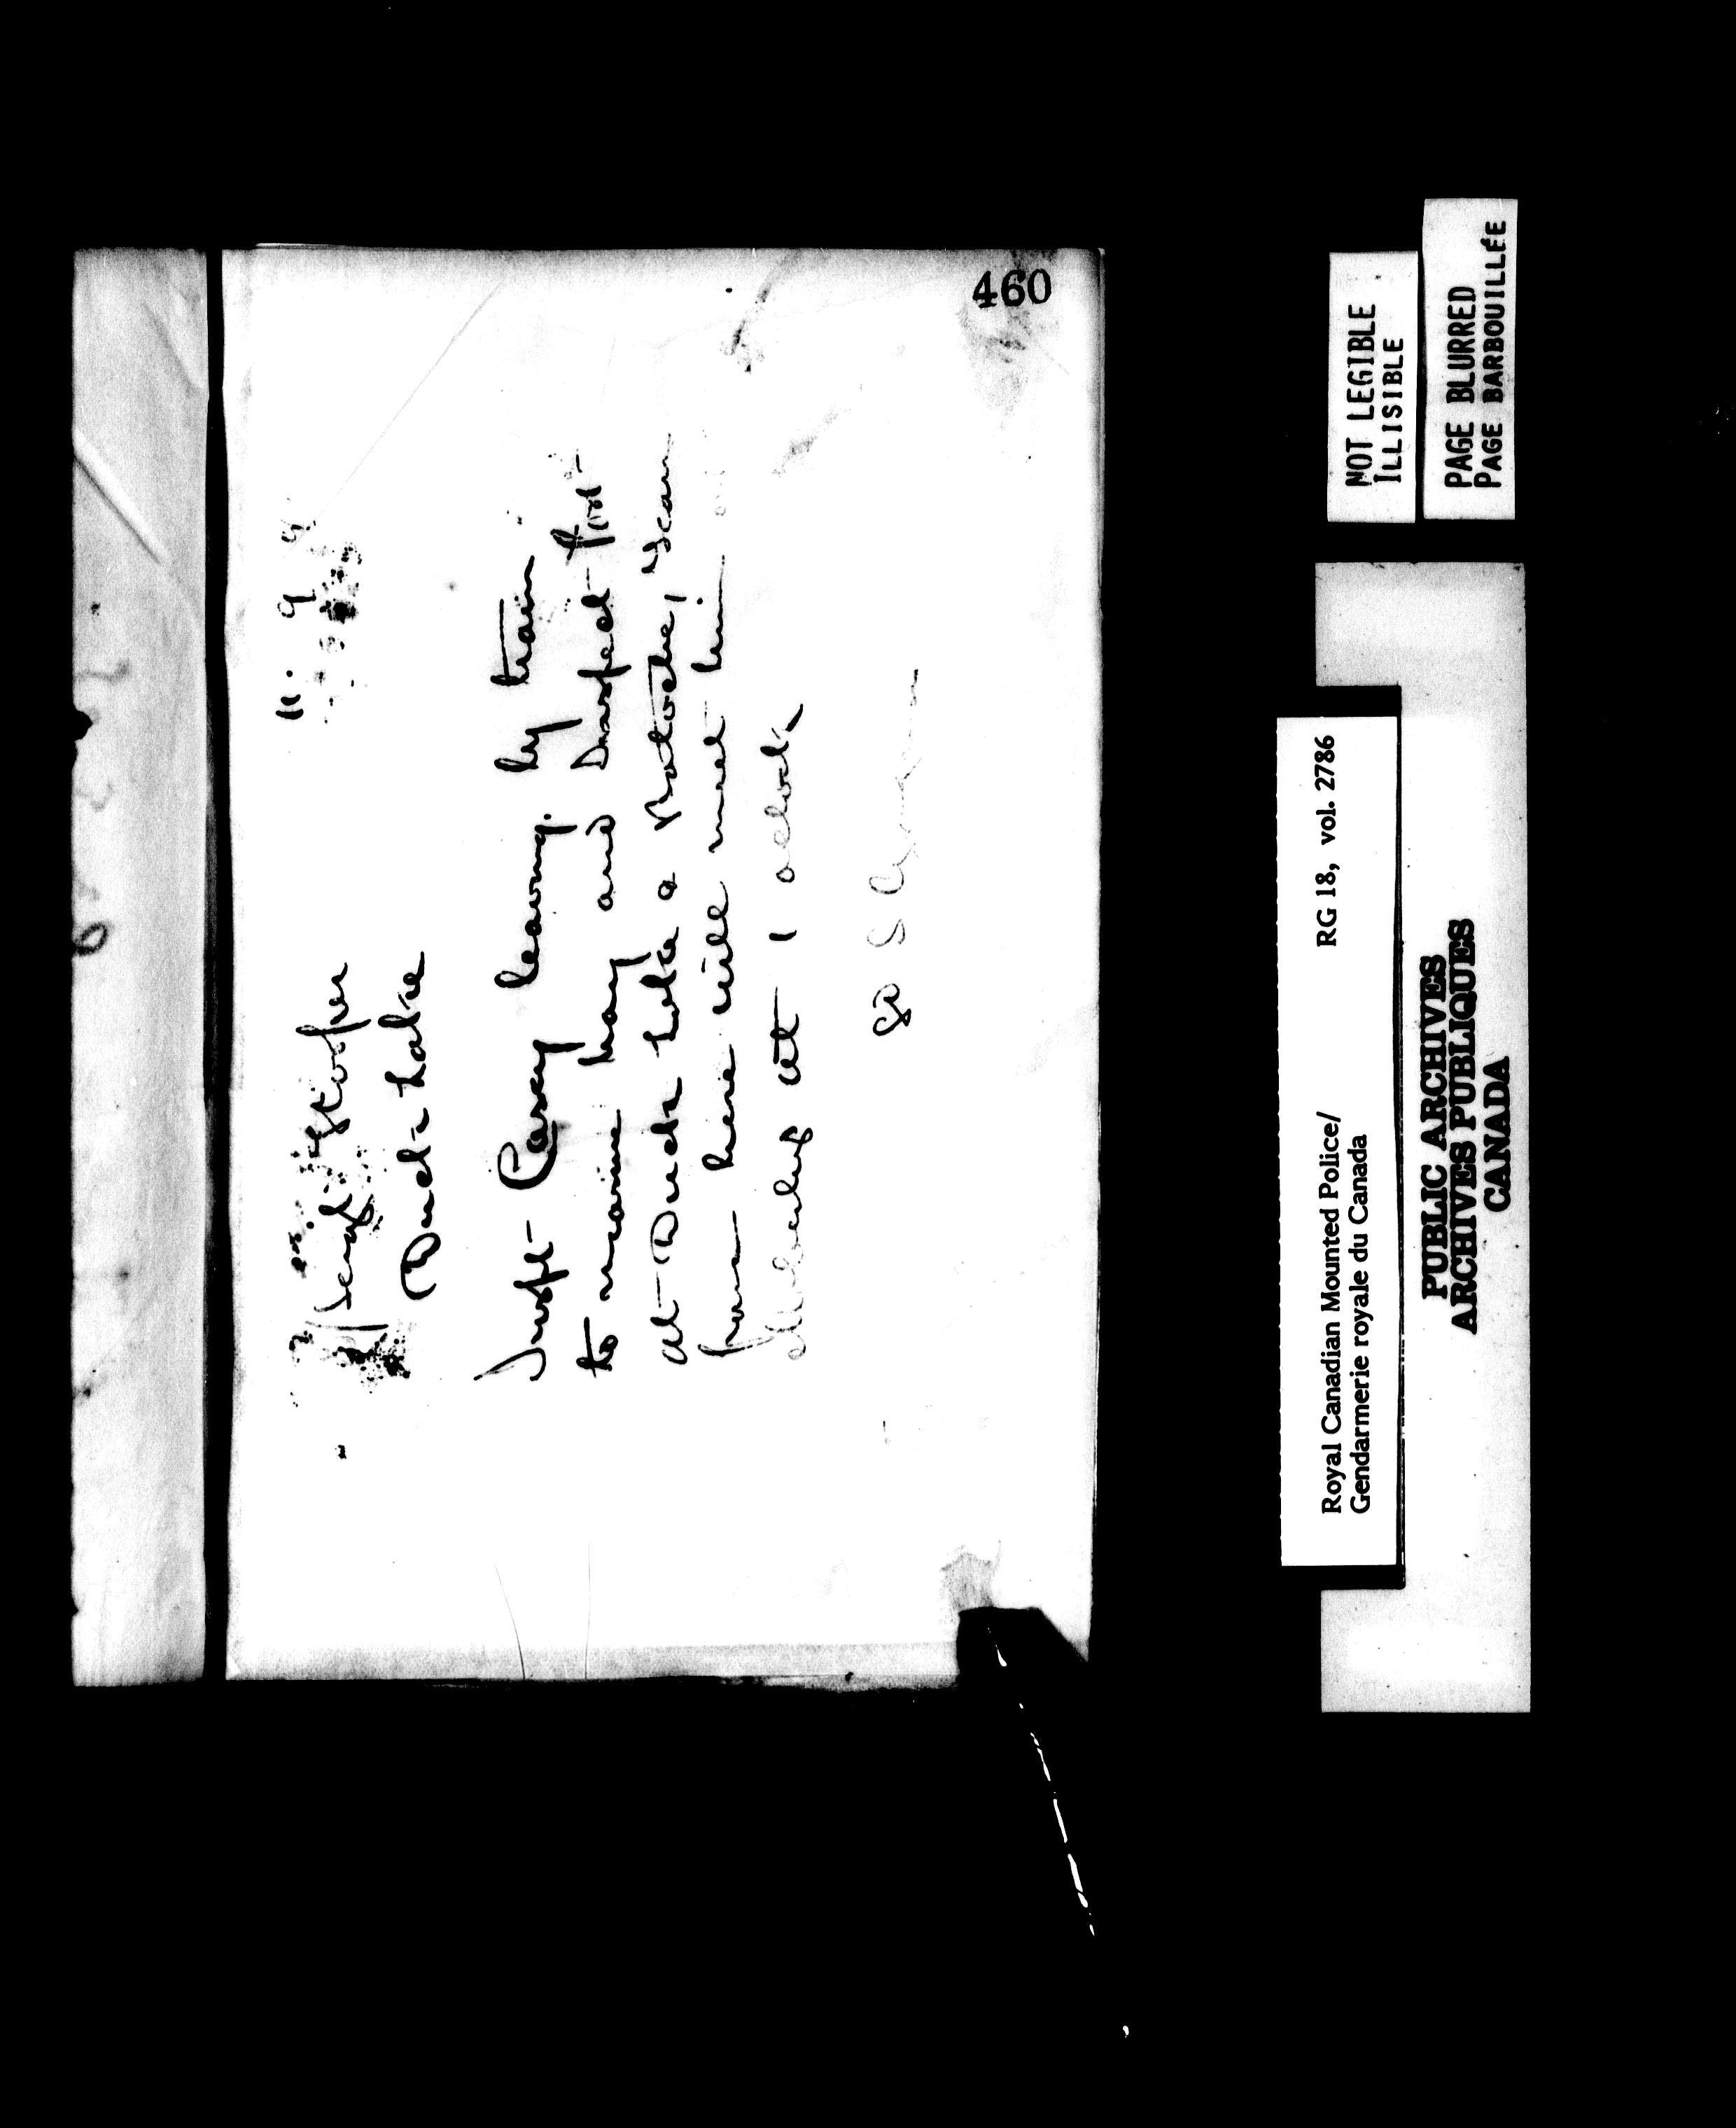 460
11. 9. 9
Duck Lake
Inspt Casey leaving by train
to measure hay and Inspect Post
at Duck Lake & Batoche, Team
from here will meet him
at 1 oclock
NOT LEGIBLE
ILLISIBLE
PAGE BLURRED
PAGE BARBOUILLÉE
Royal Canadian Mounted Police/ RG 18, vol. 2786
Gendarmerie royale du Canada
PUBLIC ARCHIVES
ARCHIVES PUBLIQUES
CANADA